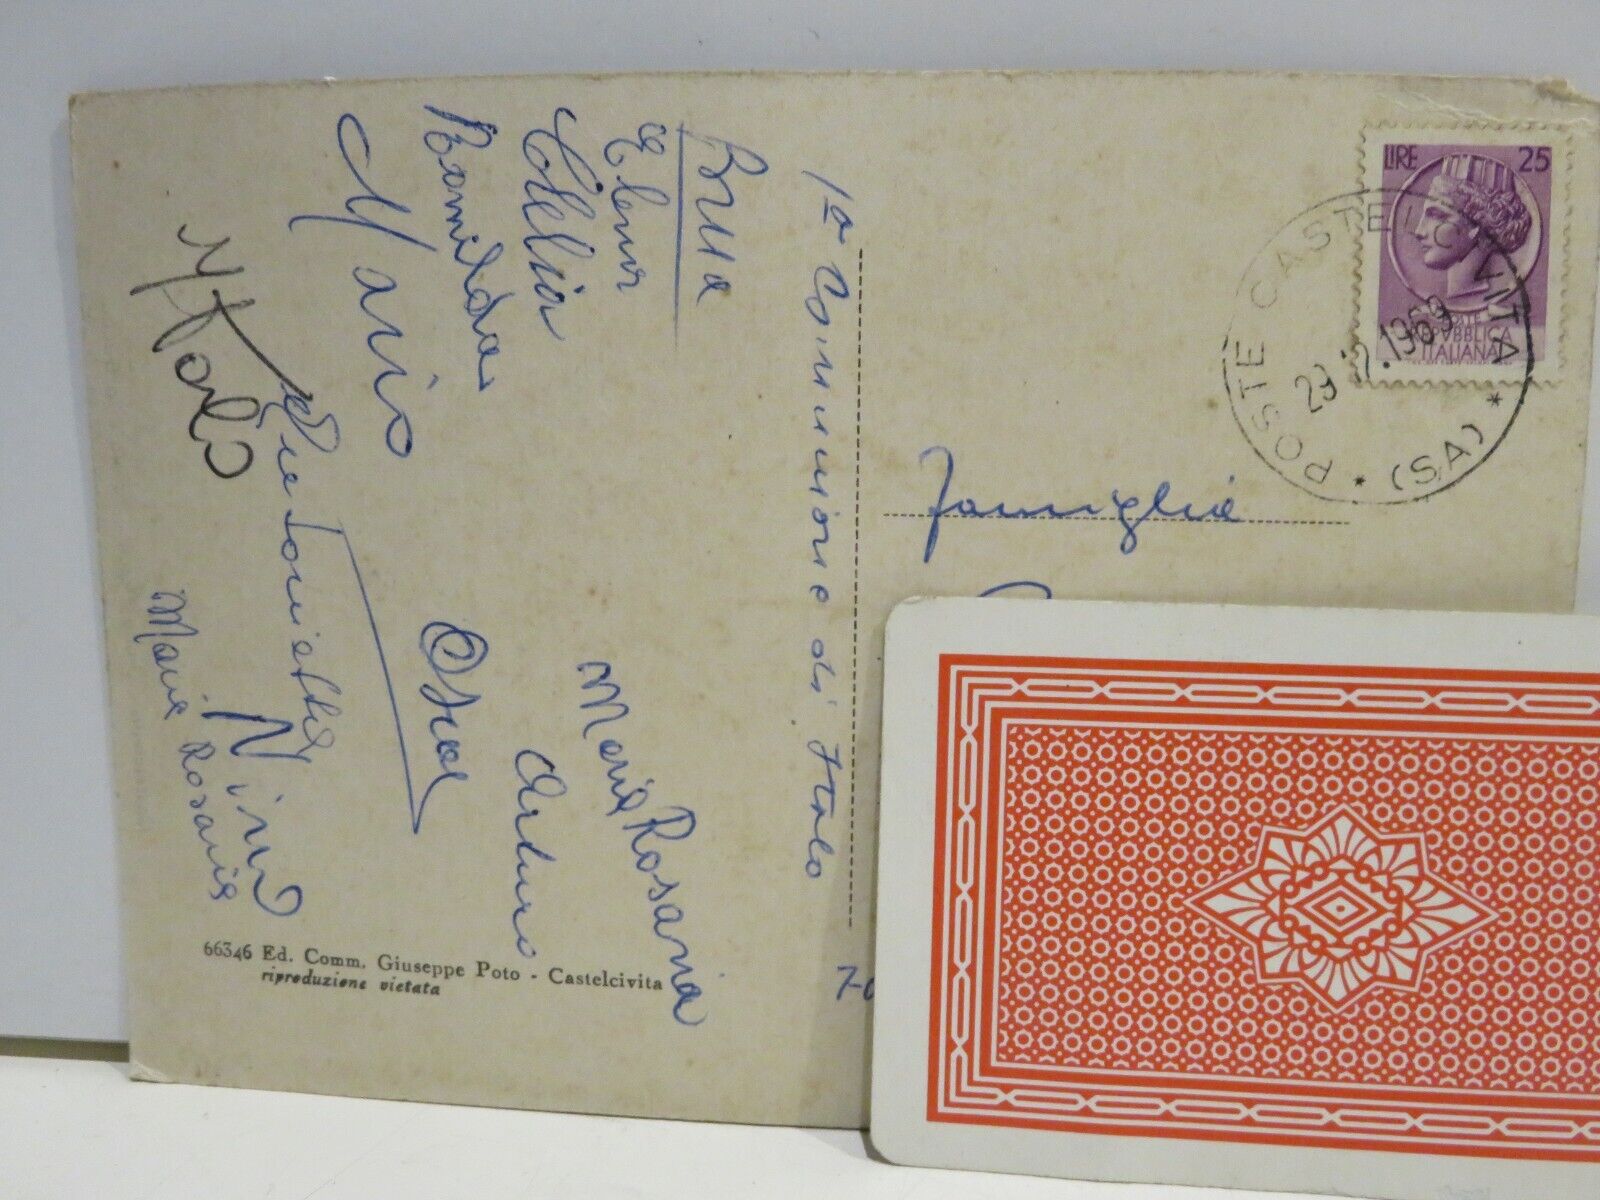 1ª Comunione di Italo
Elena
Clelia
Romilda
Mario
Antonietta
Italo
Maria Rosaria
Arturo
Oscar
Nino
Maria Rosaria
66346 Ed. Comm. Giuseppe Poto - Castelcivita
riproduzione vietata
LIRE 25
POSTE
REPVBBLICA
ITALIANA
POSTE CASTELCIVITA
* (SA) *
1969
Famiglia